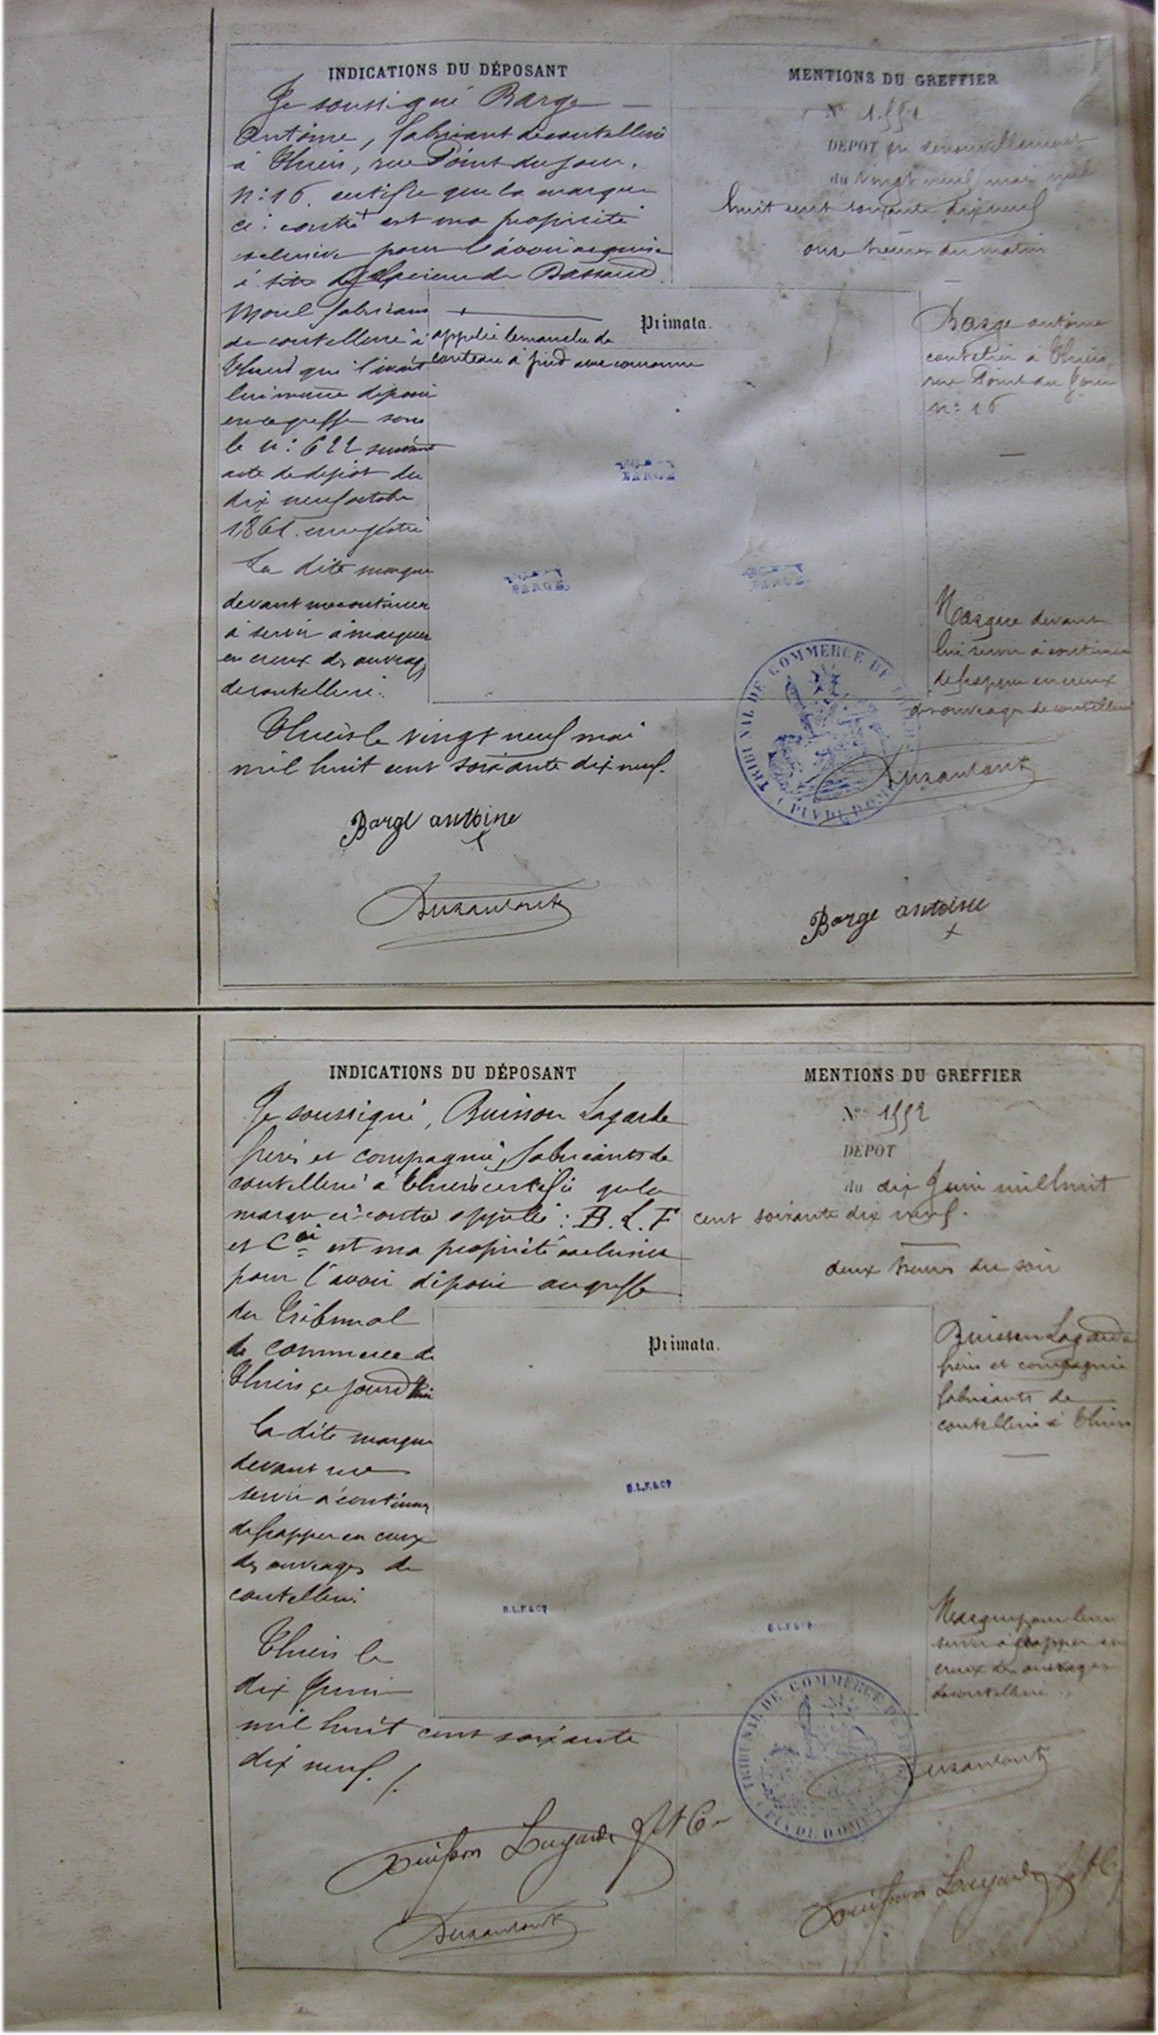 INDICATIONS DU DÉPOSANT
Je soussigné Barge
Antoine, fabricant de coutellerie
à Thiers, rue Point du jour,
N: 16. certifie que la marque
ci-contre est ma propriété
exclusive pour l'avoir acquise
à Bassand
Morel fabricant
de coutellerie à
Thiers qui l'avait
lui même déposé
en ce greffe sous
le n: 622 suivant
acte de dépôt du
dix neuf octobre
1861. enregistré
La dite marque
devant me continuer
à servir à marquer
en creux des ouvrages
de coutellerie.
Thiers le vingt neuf mai
mil huit cent soixante dix neuf.
Barge antoine
MENTIONS DU GREFFIER
N° 1551
DEPOT en renouvellement
du vingt neuf mai mil
huit cent soixante dix neuf
onze heures du matin
Primata.
appelée le manche de
couteau à pied avec couronne
BARGE
BARGE
BARGE
Barge antoine
coutelier à Thiers,
rue Point du Jour
n: 16
Marque devant
lui servir à continuer
de frapper en creux
des ouvrages de coutellerie
TRIBUNAL DE COMMERCE DE THIERS
(PUY DE DOME)
Barge antoine
INDICATIONS DU DÉPOSANT
Je soussigné, Buisson Lagarde
frères et compagnie, fabricants de
coutellerie à Thiers certifie que la
marque ci contre appelée: B. L. F
et Cie est ma propriété exclusive
pour l'avoir déposée au greffe
du Tribunal
de commerce de
Thiers ce jourd'hui
La dite marque
devant me
servir à continuer
de frapper en creux
des ouvrages de
coutellerie.
Thiers le
dix Juin
mil huit cent soixante
dix neuf.
Buisson Lagarde f et Co
MENTIONS DU GREFFIER
N° 1552
DEPOT
du dix Juin mil huit
cent soixante dix neuf.
deux heures du soir
Primata.
B.L.F.&Cie
B.L.F.&Cie
B.L.F.&Cie
Buisson Lagarde
frères et compagnie
fabricants de
coutellerie à Thiers
Marque pour leur
servir à frapper en
creux des ouvrages
de coutellerie
TRIBUNAL DE COMMERCE DE THIERS
(PUY DE DOME)
Buisson Lagarde f et C